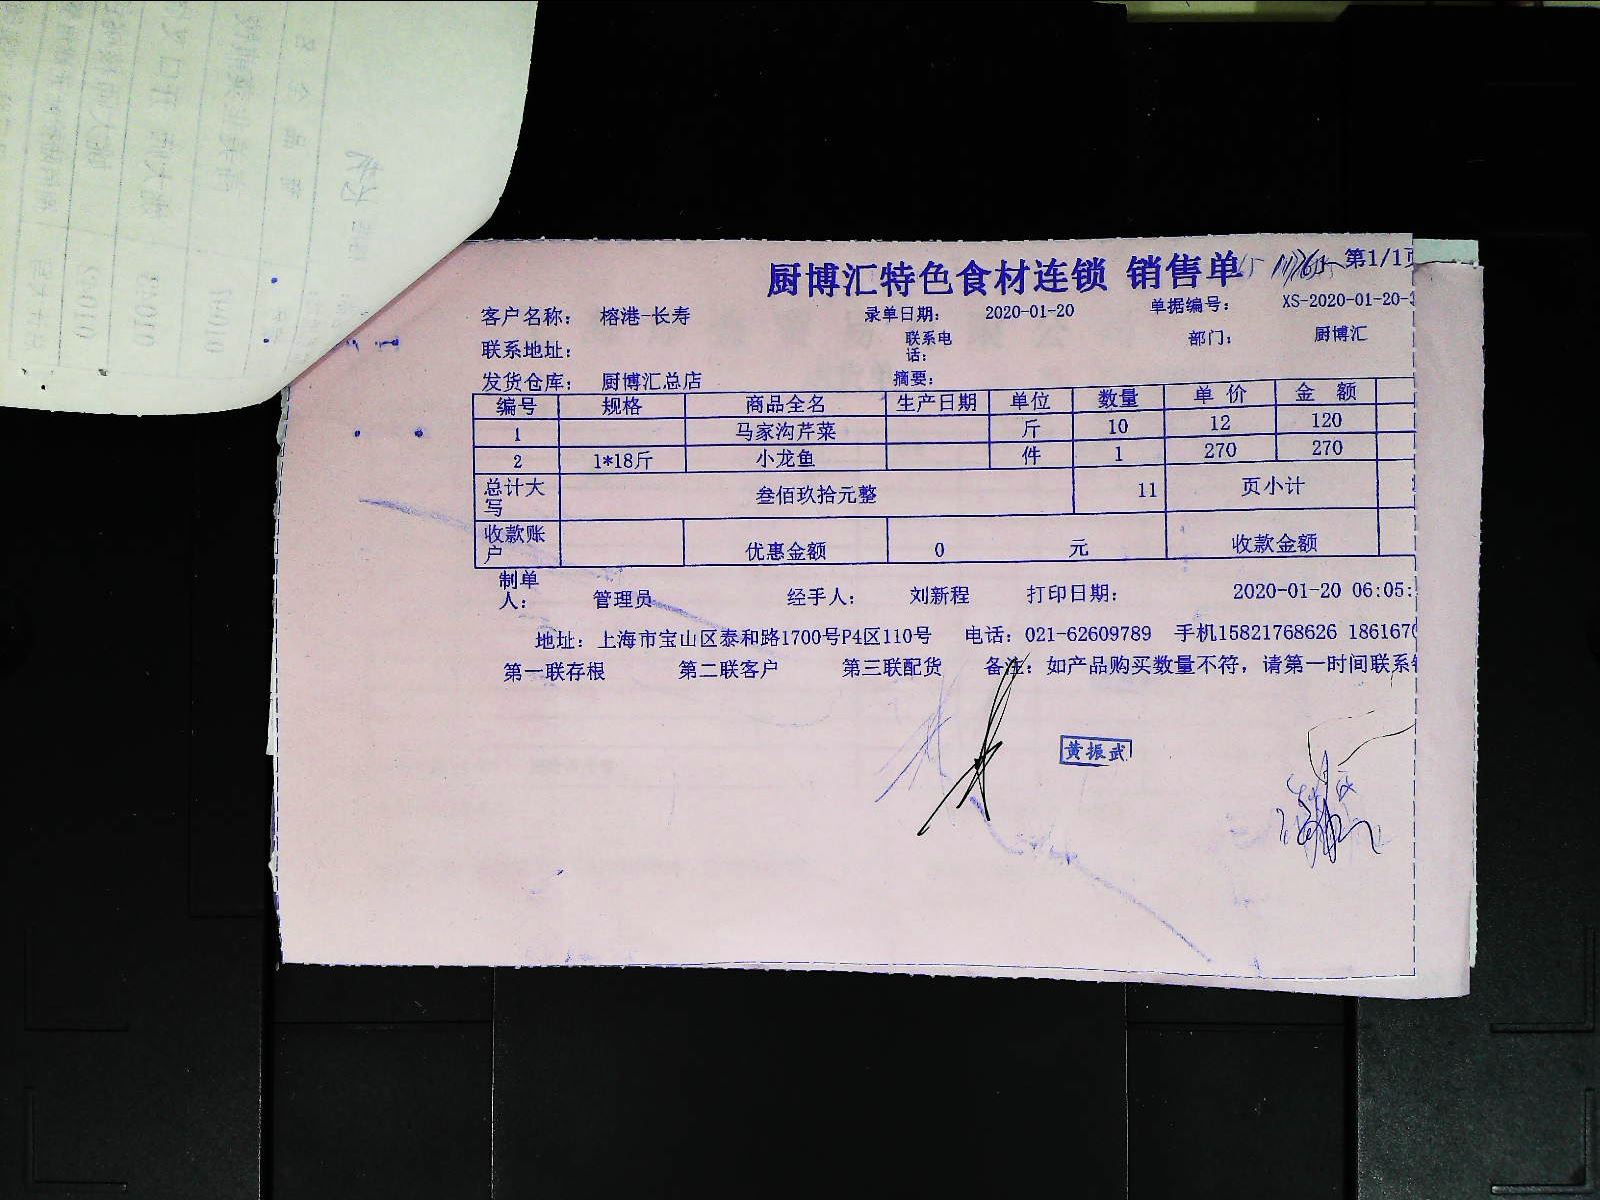 厨博汇特色食材连锁 销售单 第1/1页
客户名称： 榕港-长寿 录单日期： 2020-01-20 单据编号： XS-2020-01-20-
联系地址： 联系电话： 部门： 厨博汇
发货仓库： 厨博汇总店 摘要：
编号 规格 商品全名 生产日期 单位 数量 单价 金额
1 马家沟芹菜 斤 10 12 120
2 1*18斤 小龙鱼 件 1 270 270
总计大写 叁佰玖拾元整 11 页小计
收款账户 优惠金额 0 元 收款金额
制单人： 管理员 经手人： 刘新程 打印日期： 2020-01-20 06:05:
地址：上海市宝山区泰和路1700号P4区110号 电话：021-62609789 手机15821768626 1861670
第一联存根 第二联客户 第三联配货 备注：如产品购买数量不符，请第一时间联系
黄振武